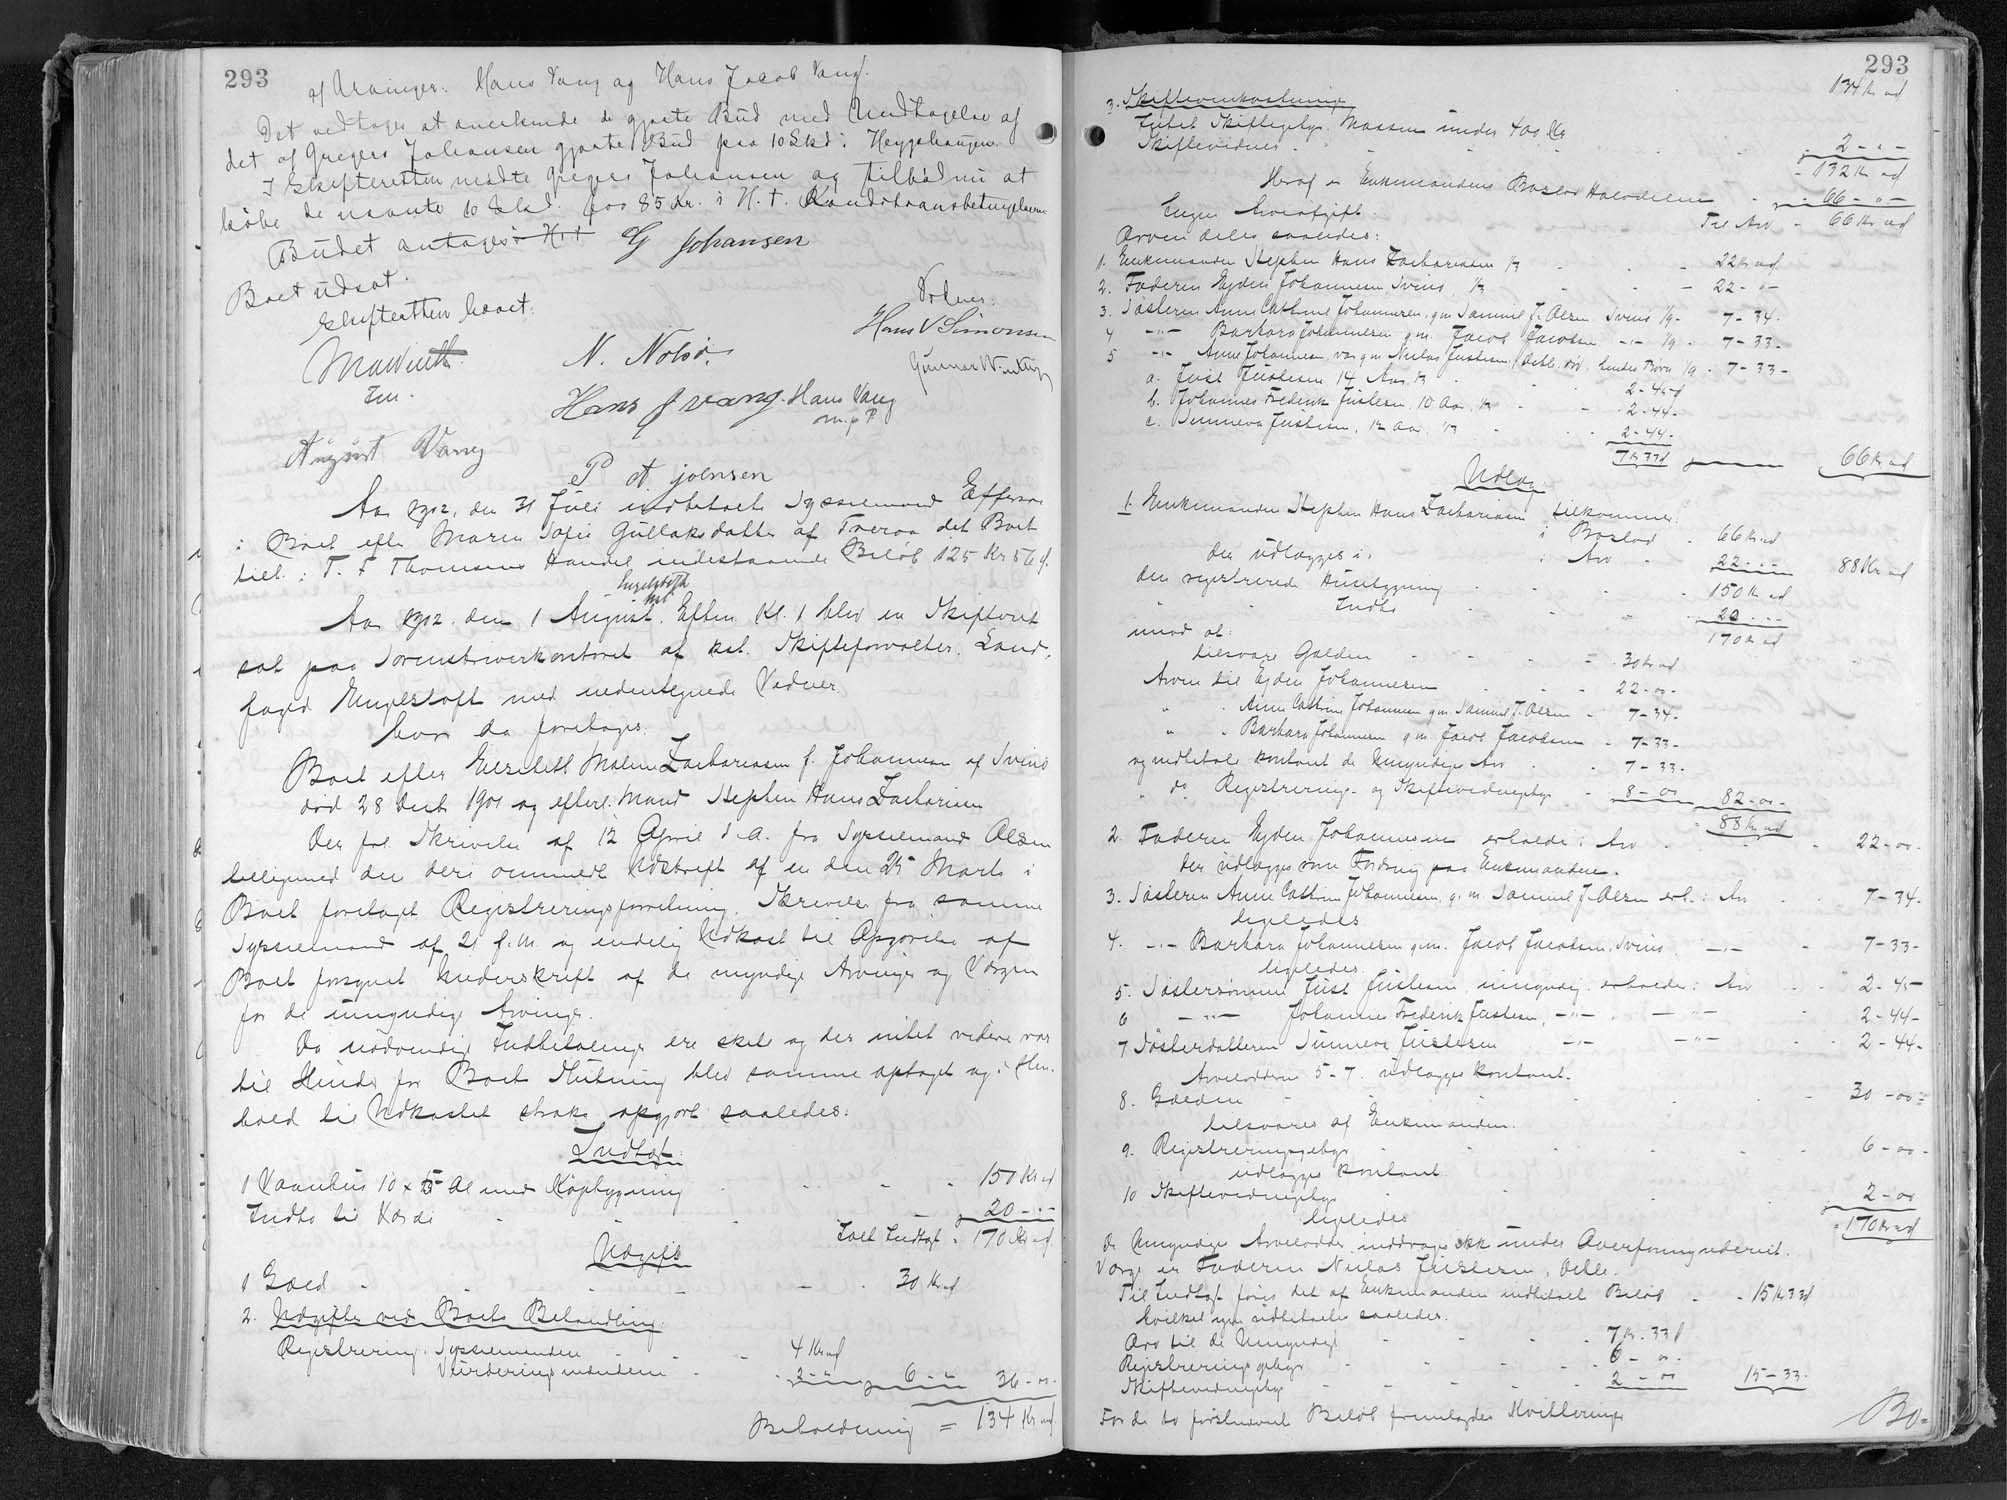 293
af Arvinger. Hans Vang og Hans Jacob Vang.
Det vedtages at anerkende de gjorte Bud med Undtagelse af
det af Gregers Johansen gjorte Bud paa 10 Skd. i Heygshaugen.
I Skifteretten mødte Gregers Johansen og tilbød nu at
købe de nævnte 10 Skd. for 85 Kr. i H. t. Konditionsbetingelserne
Budet antages. H.t.
G Johansen
Boet udsat.
Skifteretten hævet.
Vidner:
Hans V Simonsen
N. Nolsø.
fm.
Hans J Vang. Hans Vang
m. f. P.
August Vang
P A. joensen
Aar 1902, den 31 Juli indbetalte Sysselmand Effersøe
i Boet efter Maren Sofie Gullaksdatter af Tveraa det Boet
tilh. i T. F. Thomsens Handel indestaaende Beløb 125 Kr 56 Ø.
Aar 1902. den 1 August. Efterm. Kl. 1 blev en Skifteret
sat paa Sorenskriverkontoret af kst. Skifteforvalter, Land-
foged Engelstoft med undertegnede Vidner
hvor da foretages:
Boet efter Elisabeth Malene Zachariasen f. Johannesen af Svinø
død 28 Decb 1901 og efterl. Mand Stephen Hans Zachariasen
Der frl. Skrivelse af 12 April d. A. fra Sysselmand Olsen
tilligemed den deri ommeldte Udskrift af en den 25 Marts i
Boet foretaget Registreringsforretning, Skrivelse fra samme
Sysselmand af 21 f. M. og endelig Udkast til Opgørelse af
Boet forsynet Underskrift af de myndige Arvinger og Værgen
for de umyndige Arvinger.
Da nødvendige Indbetalinger ere skete og der intet videre var
til Hinder for Boets Slutning blev samme optaget og i Hen-
hold til Udkastet straks opgjort saaledes:
Indtægt:
1 Vaanhus 10 x 5 Al med Tilbygning 150 Kr ø
Indbo til Værdi 20 - -
Ialt Indtægt = 170 Kr ø
Udgift
1 Gæld 30 Kr ø
2. Udgifter ved Boets Behandling:
Registrering. Sysselmanden 4 Kr ø
Vurderingsmændene 2 - - 6 - - 36 - 00 -
Beholdning = 134 Kr ø
293
134 Kr ø
3. Skifteomkostninger
Intet Skiftegebyr. Massen under 400 Kr
Skiftevidner 2 - -
132 Kr ø
Heraf er Enkemandens Boslod Halvdelen 66 - -
Ingen Arveafgift. Til Arv 66 Kr ø
Arven deles saaledes:
1. Enkemanden Stephen Hans Zachariasen 1/3 22 Kr ø
2. Faderen Eyden Johannesen, Svinø, 1/3 22 - -
3. Søsteren Anne Cathrine Johannesen, gm. Samuel J. Olsen Svinø 1/9 7 - 34 -
4 -"- Barbara Johannesen gm. Jacob Jacobsen -"- 1/9 7 - 33 -
5 -"- Anne Johannesen, var gm Niclas Justesen, død, hendes Børn 1/9 7 - 33 -
a. Just Justesen 14 Aar 1/3 2 - 45 -
b. Johannes Frederik Justesen, 10 Aar 1/3 2 - 44 -
c. Sunneva Justesen, 12 Aar 1/3 2 - 44 -
7 Kr 33 Ø 66 Kr ø
Udlæg
1. Enkemanden Stephen Hans Zachariasen tilkommer:
i Boslod 66 Kr ø
i Arv 22 - - 88 Kr ø
der udlægges i:
den registrerede Husbygning 150 Kr ø
" Indbo 20 - -
170 Kr ø
imod at:
tilsvare Gælden 30 Kr ø
Arven til Eyden Johannesen 22 - 00 -
" " Anne Cathrine Johannesen gm. Samuel J. Olsen 7 - 34 -
" " Barbara Johannesen gm. Jacob Jacobsen 7 - 33 -
og indbetale kontant de Umyndiges Arv 7 - 33 -
" do Registrerings- og Skiftevidnegebyr 8 - 00 82 - 00 -
88 Kr ø
2. Faderen Eyden Johannesen erholder i Arv 22 - 00 -
der udlægges som Fordring paa Enkemanden.
3. Søsteren Anne Cathrine Johannesen, g. m. Samuel J. Olsen erh. i Arv 7 - 34 -
ligeledes
4. -"- Barbara Johannesen gm. Jacob Jacobsen, Svinø -"- 7 - 33 -
ligeledes
5. Søstersønnen Just Justesen umyndig erholder i Arv 2 - 45 -
6 -"- Johannes Frederik Justesen, -"- -"- 2 - 44 -
7 Søsterdatteren Sunneva Justesen -"- -"- 2 - 44 -
Arvelodderne 5-7. udlægges kontant.
8. Gælden 30 - 00 -
tilsvares af Enkemanden.
9. Registreringsgebyr 6 - 00 -
udlægges kontant
10 Skiftevidnegebyr 2 - 00
ligeledes
170 Kr ø
De Umyndiges Arvelodder inddrages ikke under Overformynderiet.
Værge er Faderen Niclas Justesen,
Til Indtægt føres det af Enkemanden indbetalte Beløb 15 Kr 33 Ø
hvilket igen udbetales saaledes:
Arv til de Umyndige 7 Kr. 33 Ø
Registreringsgebyr 6 - 00 -
Skiftevidnegebyr 2 - 00 15 - 33 -
For de to førstnævnte Beløb fremlagdes Kvitteringer
Bo-